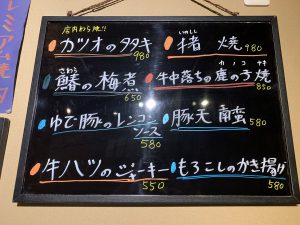 店内わら焼!!
カツオのタタキ
980
さわら
鰆の梅煮
650
ゆで豚のレンコン
ソース
580
牛ハツのジャーキー
550
いのしし
猪 焼 980
カノコ
牛中落ちの鹿の子焼
850
豚天
580
もろこしのかき揚げ
580